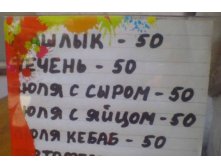 ШЫЛЫК - 50
ПЕЧЕНЬ - 50
ЛЮЛЯ С СЫРОМ - 50
ЛЮЛЯ С ЯЙЦОМ - 50
ЛЮЛЯ КЕБАБ - 50